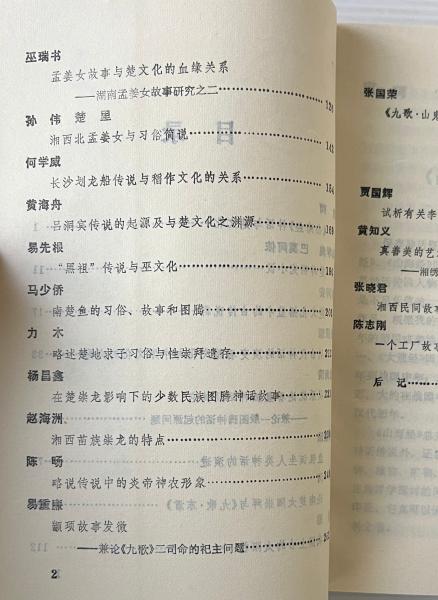 巫瑞书
孟姜女故事与楚文化的血缘关系
——湖南孟姜女故事研究之二
孙 伟 楚 里
湘西北孟姜女与习俗简说
何学威
长沙划龙船传说与稻作文化的关系
黄海舟
吕洞宾传说的起源及与楚文化之渊源
易先根
“黑祖”传说与巫文化
马少侨
南楚鱼的习俗、故事和图腾
力 木
略述楚地求子习俗与性崇拜遗存
杨昌鑫
在楚崇龙影响下的少数民族图腾神话故事
赵海洲
湘西苗族崇龙的特点
陈 旸
略说传说中的炎帝神农形象
易重廉
颛顼故事发微
——兼论《九歌》二司命的祀主问题
2
张国荣
《九歌·山鬼
贾国辉
试析有关李
黄知义
真善美的艺
——湘绣
张晓君
湘西民间故事
陈志刚
一个工厂故事
后 记